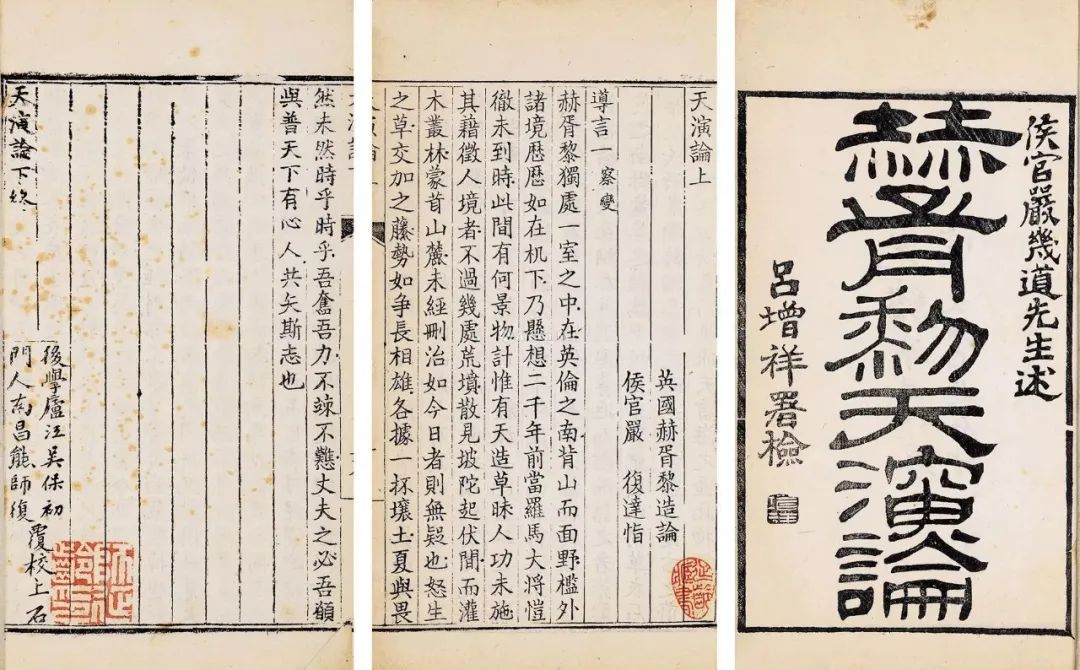 侯官嚴幾道先生述
赫胥黎天演論
呂增祥署檢
天演論上
英國赫胥黎造論
侯官嚴 復達恉
導言一 察變
赫胥黎獨處一室之中在英倫之南背山而面野檻外
諸境歷歷如在机下乃懸想二千年前當羅馬大將愷
徹未到時此間有何景物計惟有天造草昧人功未施
其藉徵人境者不過幾處荒墳散見坡陀起伏間而灌
木叢林蒙茸山麓未經刪治如今日者則無疑也怒生
之草交加之藤勢如爭長相雄各據一抔壤土夏與畏
然未然時乎時乎吾奮吾力不竦不戁丈夫之必吾願
與普天下有心人共矢斯志也
天演論下終
後學廬江吳保初
門人南昌熊師復
覆校上石